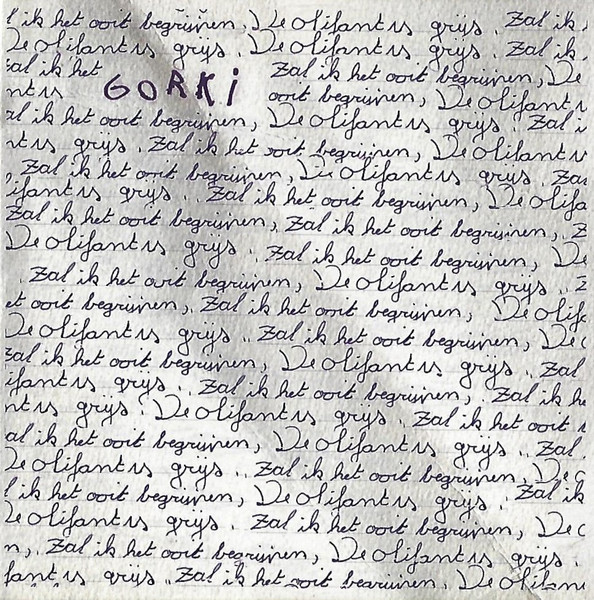 l ik het ooit begrijpen, De olifant is grijs. Zal ik
De olifant is grijs. De olifant is grijs.. Zal ik
zal ik het Zal ik het ooit begrijpen, De
nt is GORKI ooit begrijpen, De olifant i
al ik het ooit begrijpen, De olifant is grijs. Zal i
nt is grijs. Zal ik het ooit begrijpen, De olifant is
, Zal ik het ooit begrijpen, De olifant is grijs. Za
ifant is grijs. Zal ik het ooit begrijpen, De olifa
Zal ik het ooit begrijpen, Zal ik het ooit begrijpen, Z
De olifant is grijs. Zal ik het ooit begrijpen, De
. Zal ik het ooit begrijpen, De olifant is grijs.. Z
et ooit begrijpen, Zal ik het ooit begrijpen, De olif
De olifant is grijs.. Zal ik het ooit begrijpen, De o
zal ik het ooit begrijpen, De olifant is grijs.. Zal
ifant is grijs.. Zal ik het ooit begrijpen, Zal ik he
nt is grijs. De olifant is grijs. Zal ik het ooit
al ik het ooit begrijpen, De olifant is grijs.. Zal
De olifant is grijs.. Zal ik het ooit begrijpen, De o
l ik het ooit begrijpen, De olifant is grijs. Zal ik
De olifant is grijs. Zal ik het ooit begrijpen, De o
n,. Zal ik het ooit begrijpen, De olifant is grijs.
fant is grijs.. Zal ik het ooit begrijpen, De olifan